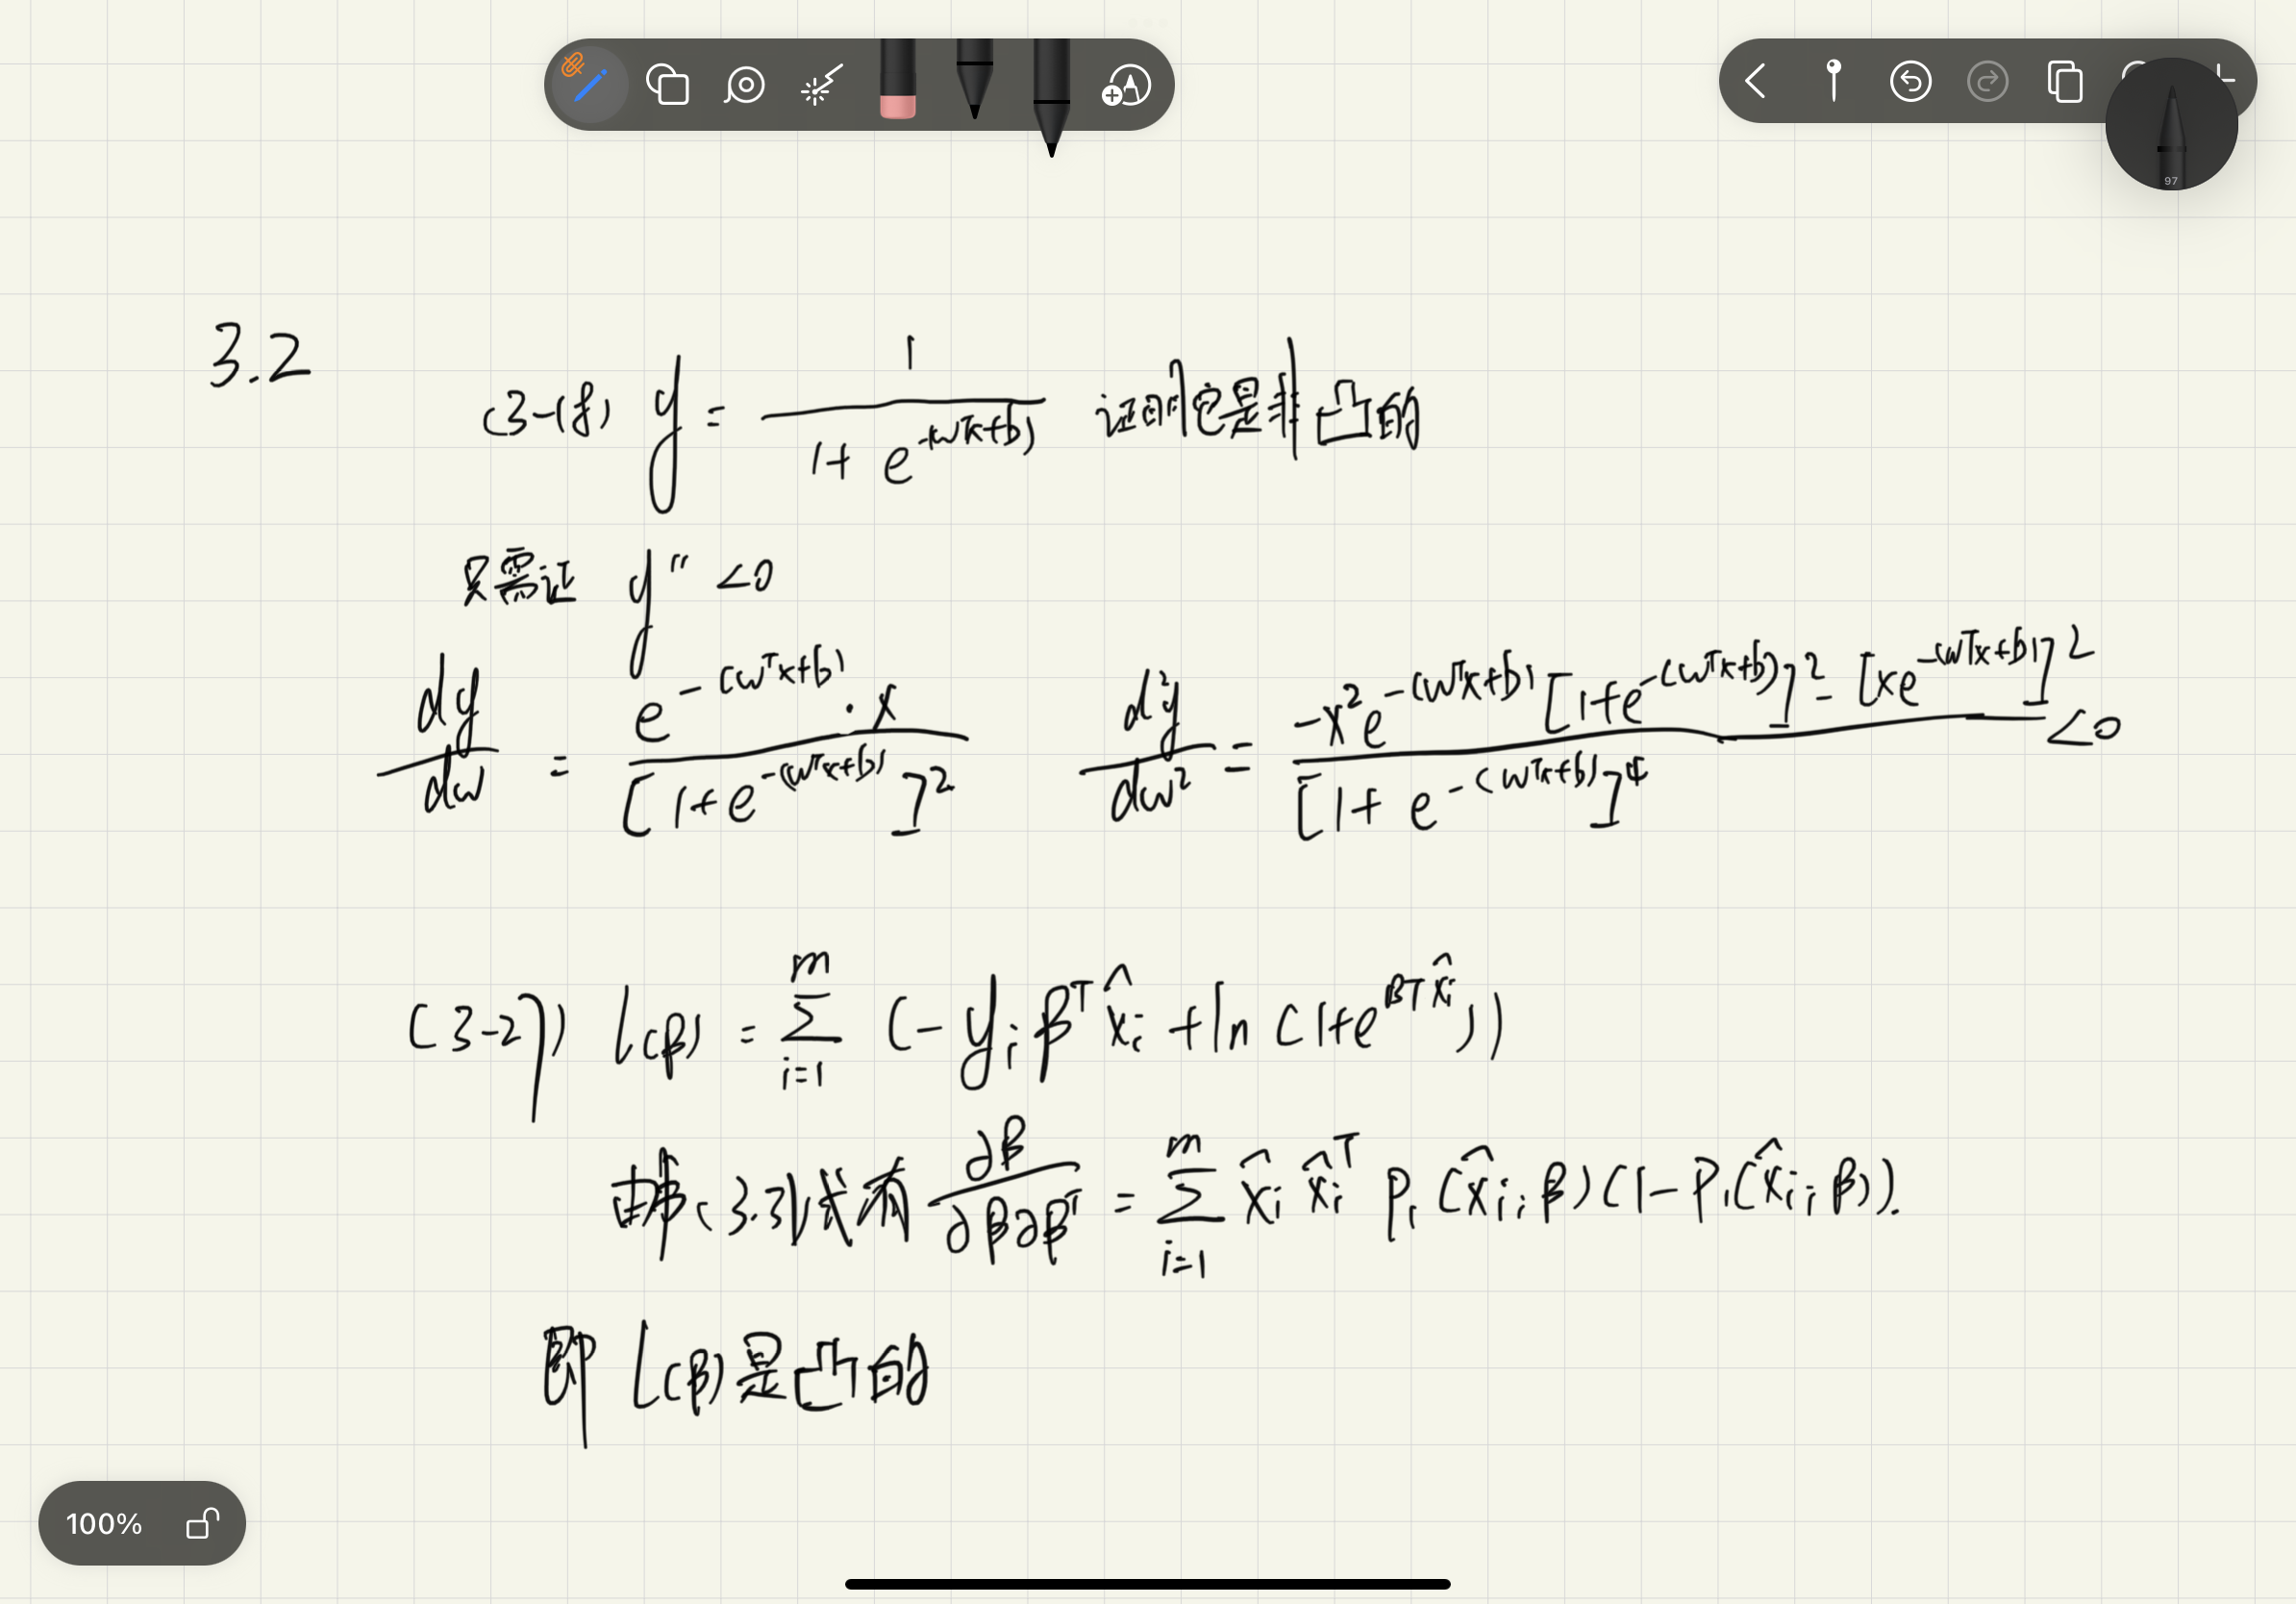 97
3.2
(3-18) y = 1 / (1 + e^{-(w^T x+b)}) 证明它是非凸的
只需证 y'' <0
dy/dw = e^{-(w^T x+b)} · x / [1+e^{-(w^T x+b)}]^2    d^2y/dw^2 = -x^2 e^{-(w^T x+b)} [1+e^{-(w^T x+b)}]^2 - [xe^{-(w^T x+b)}]^2 / [1+ e^{-(w^T x+b)}]^4 <0
(3-27) l(β) = Σ_{i=1}^{m} (- y_i β^T x̂_i + ln (1+e^{β^T x̂_i}))
(3.31)式有 ∂β/∂β∂β^T = Σ_{i=1}^{m} x̂_i x̂_i^T P_1 (x̂_i; β) (1 - P_1(x̂_i; β)).
即 l(β)是凸的
100%